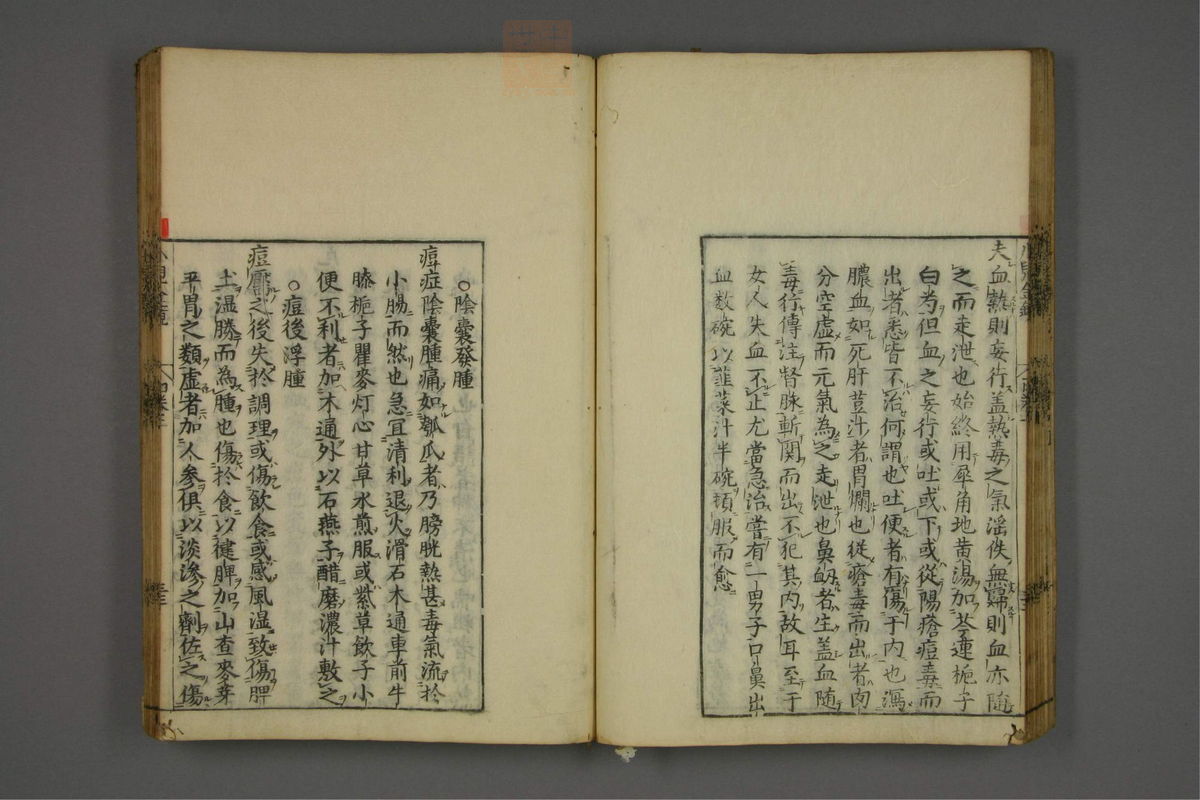 夫血熱則妄行盖熱毒之氣淫佚無歸則血亦隨
之而走泄也始終用犀角地黄湯加芩連梔子
白芍但血之妄行或吐或下或從陽瘡痘毒而
出者悉皆不治何謂也吐便者有傷于内也瀉
膿血如死肝荳汁者胃爛也從瘡毒而出者肉
分空虚而元氣為之走泄也鼻衂者生盖血随
毒行傳注督脉斬関而出不犯其内故耳至于
女人失血不止尤當急治嘗有一男子口鼻出
血数碗以韮菜汁半碗頓服而愈
○陰囊發腫
痘症陰囊腫痛如瓠瓜者乃膀胱熱甚毒氣流於
小腸而然也急宜清利退火滑石木通車前牛
膝梔子瞿麥灯心甘草水煎服或紫草飲子小
便不利者加木通外以石燕子醋磨濃汁敷之
○痘後浮腫
痘靨之後失於調理或傷飲食或感風湿致傷脾
土温勝而為腫也傷於食以健脾加山查麥芽
平胃之類虚者加人参俱以淡滲之劑佐之傷